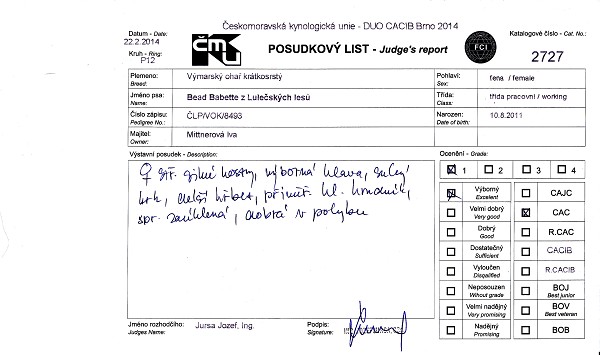 Českomoravská kynologická unie - DUO CACIB Brno 2014
Datum - Date:
22.2.2014
Kruh - Ring:
P12
ČMKU
POSUDKOVÝ LIST - Judge's report
FCI
Katalogové číslo - Cat. No.:
2727
Plemeno:
Breed:
Výmarský ohař krátkosrstý
Pohlaví:
Sex:
fena / female
Jméno psa:
Name:
Bead Babette z Lulečských lesů
Třída:
Class:
třída pracovní / working
Číslo zápisu:
Pedigree No.:
ČLP/VOH/8493
Narozen:
Date of birth:
10.8.2011
Majitel:
Owner:
Mittnerová Iva
Výstavní posudek - Description:
♀ stř. silné kostry, výborná hlava, suchý
krk, delší hřbet, přiměř. hl. hrudník,
spr. zaúhlená, dobrá v pohybu
Ocenění - Grade:
1 2 3 4
Výborný
Excelent
CAJC
Velmi dobrý
Very good
CAC
Dobrý
Good
R.CAC
Dostatečný
Sufficient
CACIB
Vyloučen
Disqalified
R.CACIB
Neposouzen
Without grade
BOJ
Best junior
Velmi nadějný
Very promising
BOV
Best veteran
Nadějný
Promising
BOB
Jméno rozhodčího:
Judges Name:
Jursa Jozef, Ing.
Podpis:
Signature: